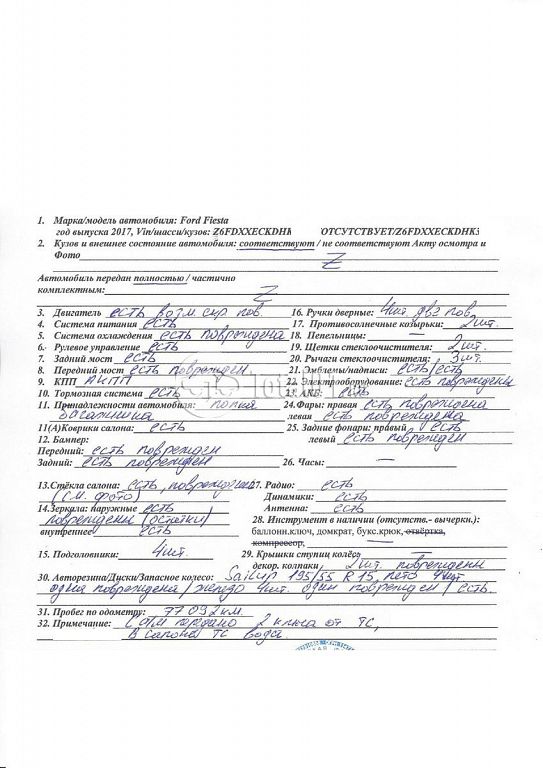 1. Марка/модель автомобиля: Ford Fiesta
год выпуска 2017, Vin/шасси/кузов: Z6FDXXECKDHK ОТСУТСТВУЕТ/Z6FDXXECKDHK3
2. Кузов и внешнее состояние автомобиля: соответствуют / не соответствуют Акту осмотра и
Фото Z
Автомобиль передан полностью / частично
комплектным: Z
3. Двигатель есть возм скр пов. 16. Ручки дверные: 4шт. две пов.
4. Система питания есть 17. Противосолнечные козырьки: 2шт.
5. Система охлаждения есть повреждена 18. Пепельницы: —
6. Рулевое управление есть 19. Щетки стеклоочистителя: 2шт.
7. Задний мост есть 20. Рычаги стеклоочистителя: 3шт.
8. Передний мост есть поврежден. 21. Эмблемы/надписи: есть/есть
9. КПП АКПП 22. Электрооборудование: есть повреждены
10. Тормозная система есть 23. АКБ: есть
11. Принадлежности автомобиля: полка 24. Фары: правая есть повреждена
багажника левая есть повреждена
11(А)Коврики салона: есть 25. Задние фонари: правый есть
12. Бампер: левый есть поврежден
Передний: есть поврежден
Задний: есть поврежден 26. Часы: —
13.Стёкла салона: есть, повреждено 27. Радио: есть
(см. фото) Динамики: есть
14.Зеркала: наружные есть Антенна: есть
повреждены (остатки) 28. Инструмент в наличии (отсутств.- вычеркн.):
внутреннее есть баллонн.ключ, домкрат, букс.крюк, отвёртка,
компрессор,
15. Подголовники: 4шт. 29. Крышки ступиц колёс —
декор. колпаки, 2шт. повреждены
30. Авторезина/Диски/Запасное колесо: Sailun 195/55 R15, лето 4шт
одна повреждена / железо 4шт. один поврежден / есть.
31. Пробег по одометру: 77 092 км.
32. Примечание: С а/м передано 2 ключа от ТС,
в салоне ТС вода